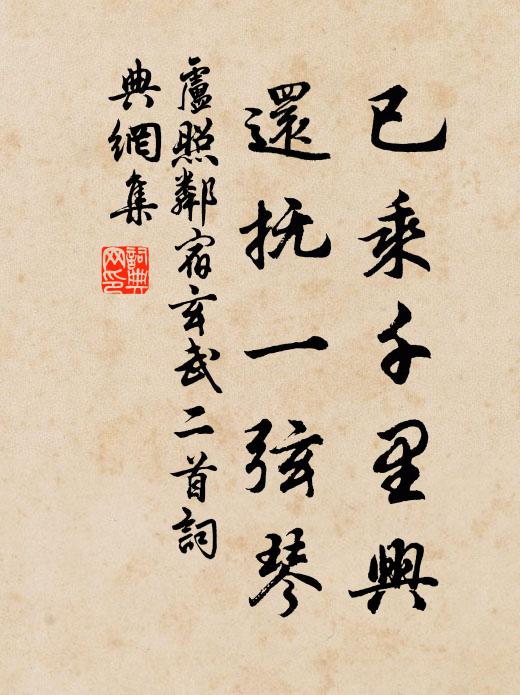 已乘千里興
還抚一弦琴
盧照鄰宿玄武二首詞
典網集
詞典网印